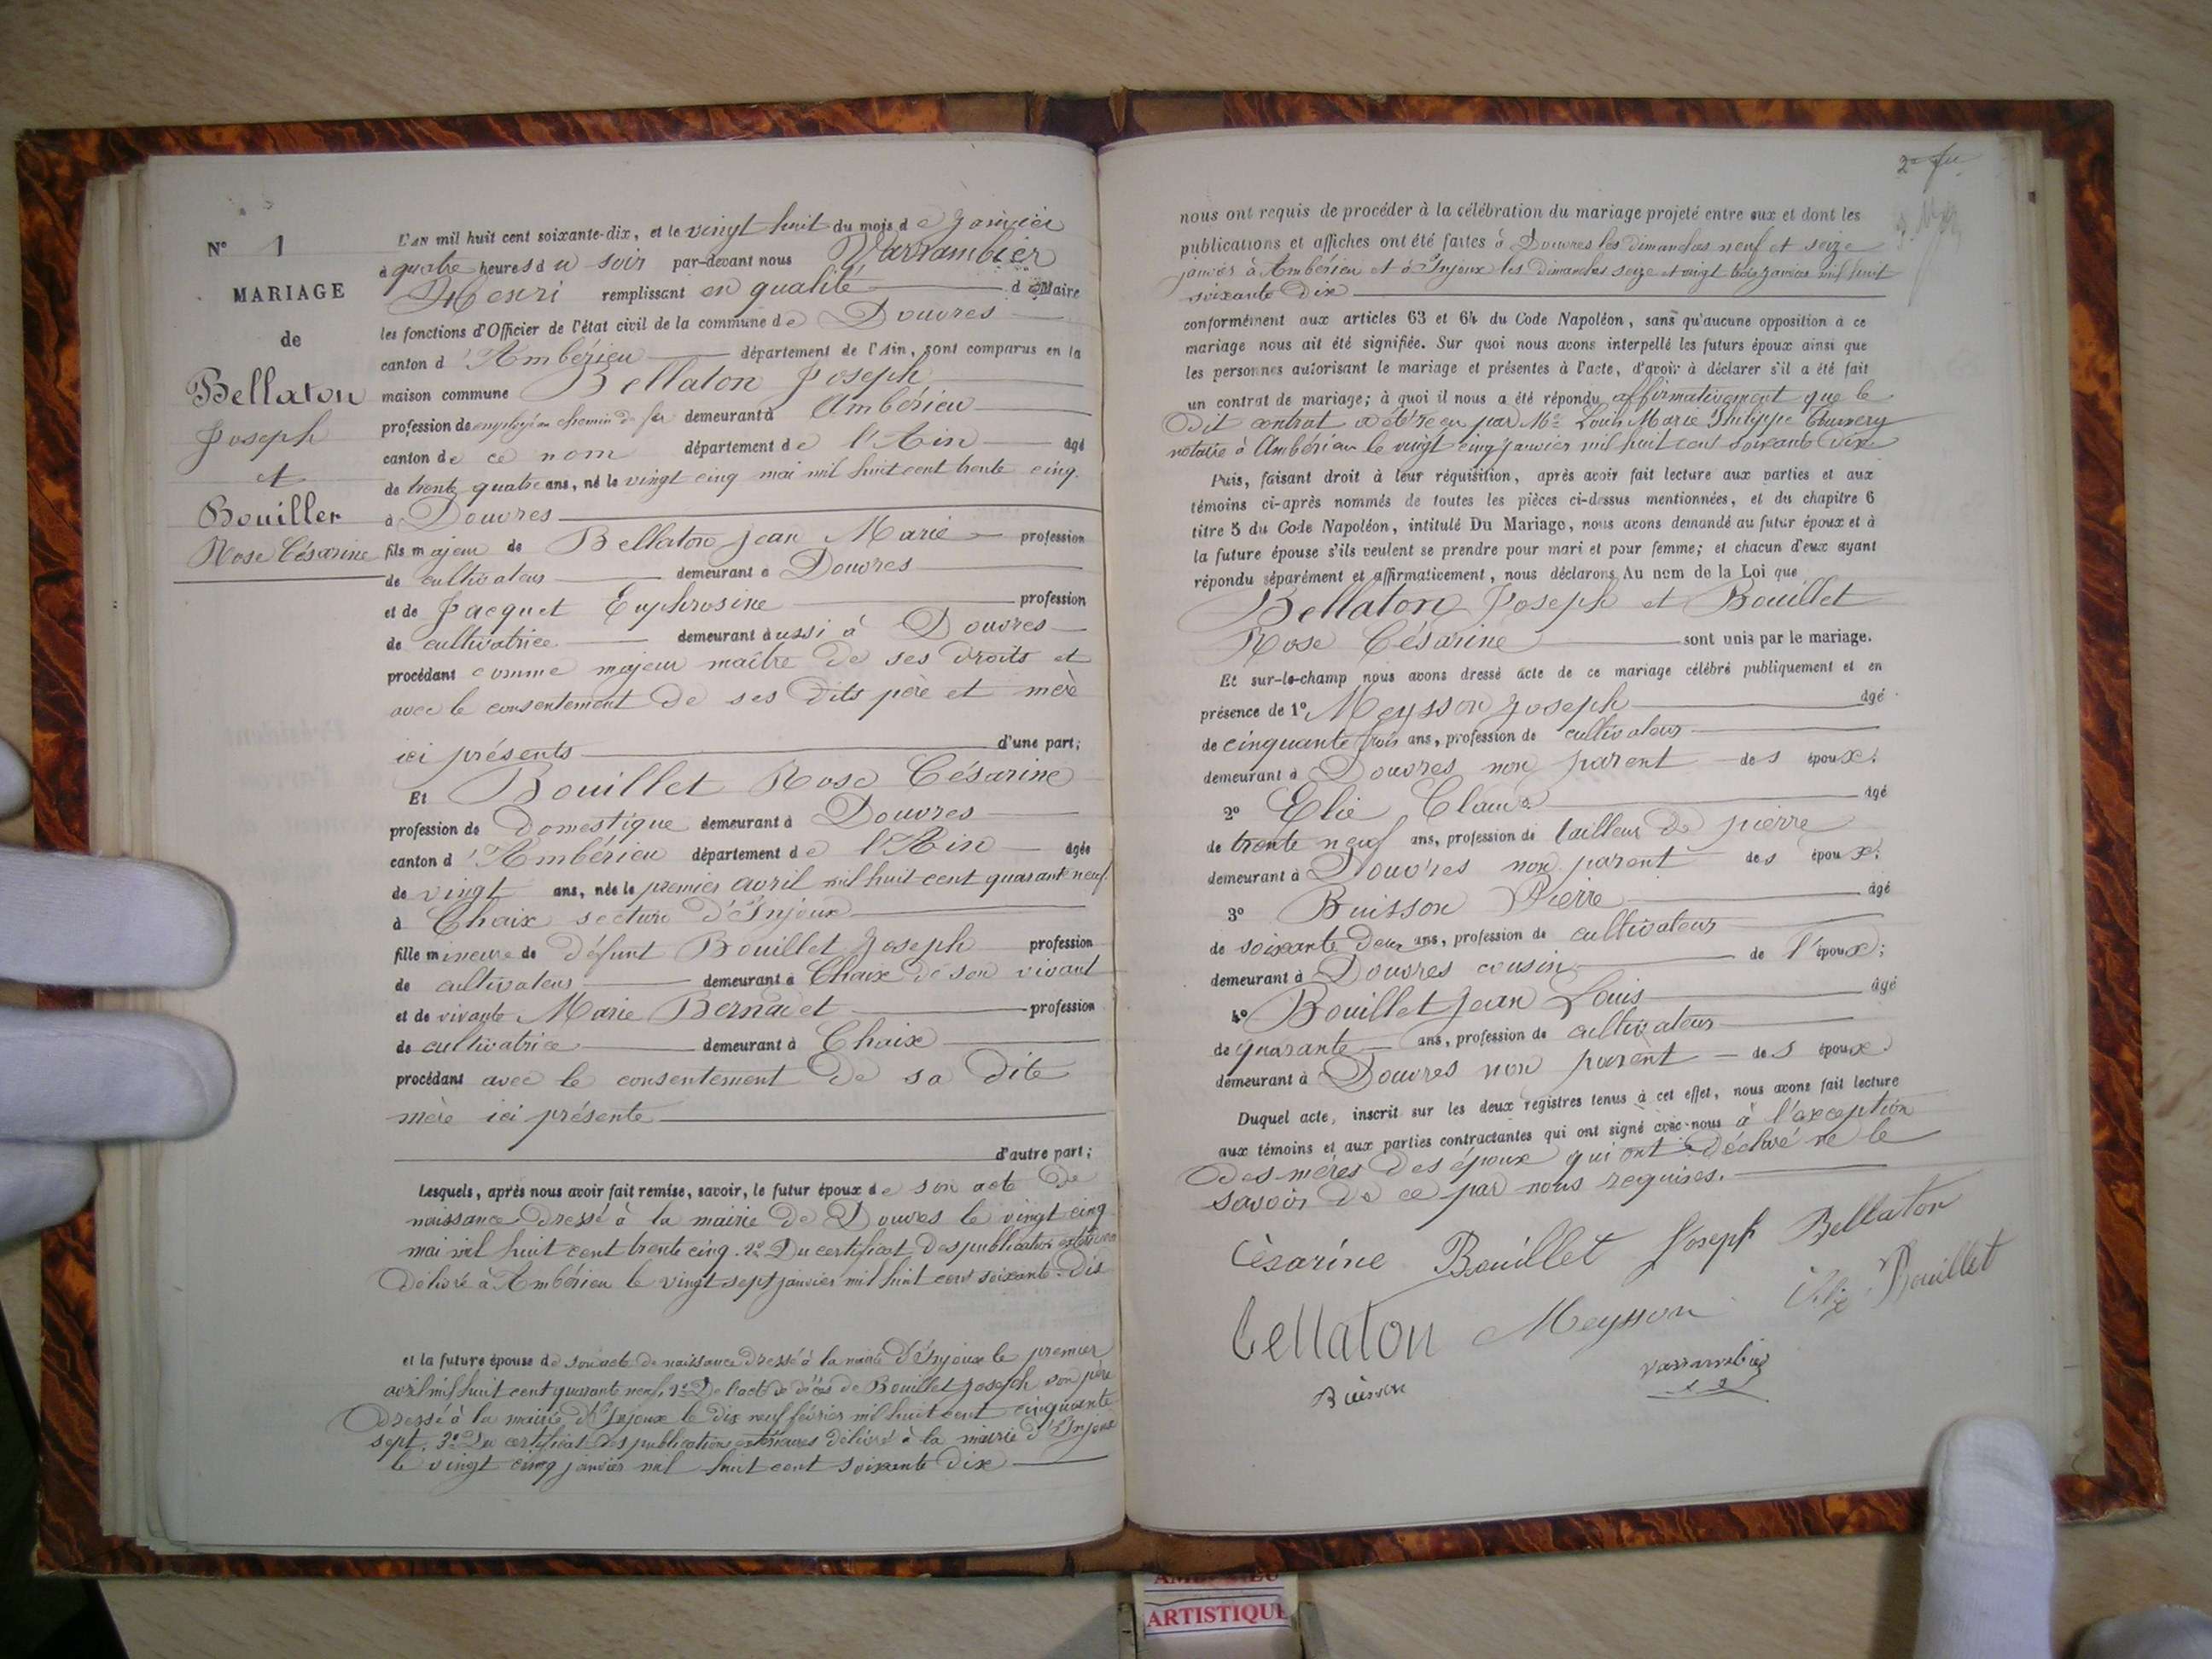 N° 1
MARIAGE
de
Bellaton
Joseph
et
Bouiller
Rose Césarine
L'AN mil huit cent soixante-dix, et le vingt huit du mois de Janvier
à quatre heures du soir par-devant nous Varrambier
Henri remplissant en qualité de Maire
les fonctions d'Officier de l'état civil de la commune de Douvres
canton d'Ambérieu département de l'Ain, sont comparus en la
maison commune Bellaton Joseph
profession de employé au chemin de fer demeurant à Ambérieu
canton de ce nom département de l'Ain âgé
de trente quatre ans, né le vingt cinq mai mil huit cent trente cinq
à Douvres
fils majeur de Bellaton Jean Marie profession
de cultivateur demeurant à Douvres
et de Jacquet Euphrosine profession
de cultivatrice demeurant aussi à Douvres
procédant comme majeur maître de ses droits et
avec le consentement de ses dits père et mère
ici présents d'une part;
Et Bouillet Rose Césarine
profession de Domestique demeurant à Douvres
canton d'Ambérieu département de l'Ain âgée
de vingt ans, née le premier avril mil huit cent quarante neuf
à Chaix section d'Injoux
fille mineure de défunt Bouillet Joseph profession
de cultivateur demeurant à Chaix de son vivant
et de vivante Marie Bernadet profession
de cultivatrice demeurant à Chaix
procédant avec le consentement de sa dite
mère ici présente
d'autre part;
Lesquels, après nous avoir fait remise, savoir, le futur époux de son acte de
naissance dressé à la mairie de Douvres le vingt cinq
mai mil huit cent trente cinq. 2° Du certificat des publications
délivré à Ambérieu le vingt sept janvier mil huit cent soixante-dix
et la future épouse de son acte de naissance dressé à la mairie d'Injoux le premier
avril mil huit cent quarante neuf, 2° De l'acte de décès de Bouillet Joseph son père
dressé à la mairie d'Injoux le dix neuf février mil huit cent cinquante
sept. 3° Du certificat des publications extérieures délivré à la mairie d'Injoux
le vingt cinq janvier mil huit cent soixante dix
nous ont requis de procéder à la célébration du mariage projeté entre eux et dont les
publications et affiches ont été faites à Douvres les dimanches neuf et seize
janvier à Ambérieu et à Injoux les dimanches seize et vingt trois janvier mil huit
soixante dix
conformément aux articles 63 et 64 du Code Napoléon, sans qu'aucune opposition à ce
mariage nous ait été signifiée. Sur quoi nous avons interpellé les futurs époux ainsi que
les personnes autorisant le mariage et présentes à l'acte, d'avoir à déclarer s'il a été fait
un contrat de mariage; à quoi il nous a été répondu affirmativement que le
dit contrat a été reçu par Me Louis Marie Philippe
notaire à Ambérieu le vingt cinq janvier mil huit cent soixante dix
Puis, faisant droit à leur réquisition, après avoir fait lecture aux parties et aux
témoins ci-après nommés de toutes les pièces ci-dessus mentionnées, et du chapitre 6
titre 5 du Code Napoléon, intitulé Du Mariage, nous avons demandé au futur époux et à
la future épouse s'ils veulent se prendre pour mari et pour femme; et chacun d'eux ayant
répondu séparément et affirmativement, nous déclarons Au nom de la Loi que
Bellaton Joseph et Bouillet
Rose Césarine sont unis par le mariage.
Et sur-le-champ nous avons dressé acte de ce mariage célébré publiquement et en
présence de 1° Meysson Joseph âgé
de cinquante trois ans, profession de cultivateur
demeurant à Douvres non parent des époux;
2° Elie Claude âgé
de trente neuf ans, profession de tailleur de pierre
demeurant à Douvres non parent des époux;
3° Buisson Pierre âgé
de soixante deux ans, profession de cultivateur
demeurant à Douvres cousin de l'époux;
4° Bouillet Jean Louis âgé
de quarante ans, profession de cultivateur
demeurant à Douvres non parent des époux.
Duquel acte, inscrit sur les deux registres tenus à cet effet, nous avons fait lecture
aux témoins et aux parties contractantes qui ont signé avec nous à l'exception
des mères des époux qui ont déclaré ne le
savoir de ce par nous requises.
Césarine Bouillet Joseph Bellaton
bellaton Meysson Elie Bouillet
Buisson Varrambier
ARTISTIQUE